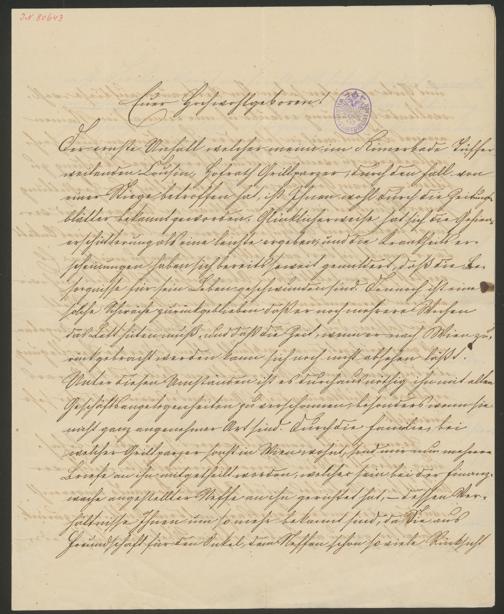 J.N. 80643
Euer Hochwohlgeboren!
Der ernste Unfall welcher meinen im Römerbade Tüffer
weilenden Cousin, Hofrath Grillparzer, durch den Fall von
einer Stiege betroffen hat, ist Ihnen wohl durch die Zeitungs-
blätter bekannt geworden. Glücklicherweise hat sich die Gehirn-
erschütterung als eine leichte ergeben, und die Krankheits er-
scheinungen haben sich bereits soweit gemildert, daß die Be-
sorgnisse für sein Leben geschwunden sind. Dennoch ist eine
solche Schwäche zurückgeblieben daß er noch mehrere Wochen
das Bett hüten muß, und daß die Zeit, wann er nach Wien zu-
rückgebracht werden kann sich noch nicht absehen läßt.
Unter diesen Umständen ist es durchaus nöthig ihn mit allen
Geschäftsangelegenheiten zu verschonen, besonders wenn sie
nicht ganz angenehmer Art sind. Durch die Familie, bei
welcher Grillparzer sonst in Wien wohnt, sind mir nun mehrere
Briefe an ihn mitgetheilt worden, welche sein bei der Finanz-
wache angestellter Neffe an ihn gerichtet hat, dessen Ver-
hältnisse Ihnen um so mehr bekannt sind, da Sie aus
Freundschaft für den Onkel, dem Neffen schon so viele Rücksicht